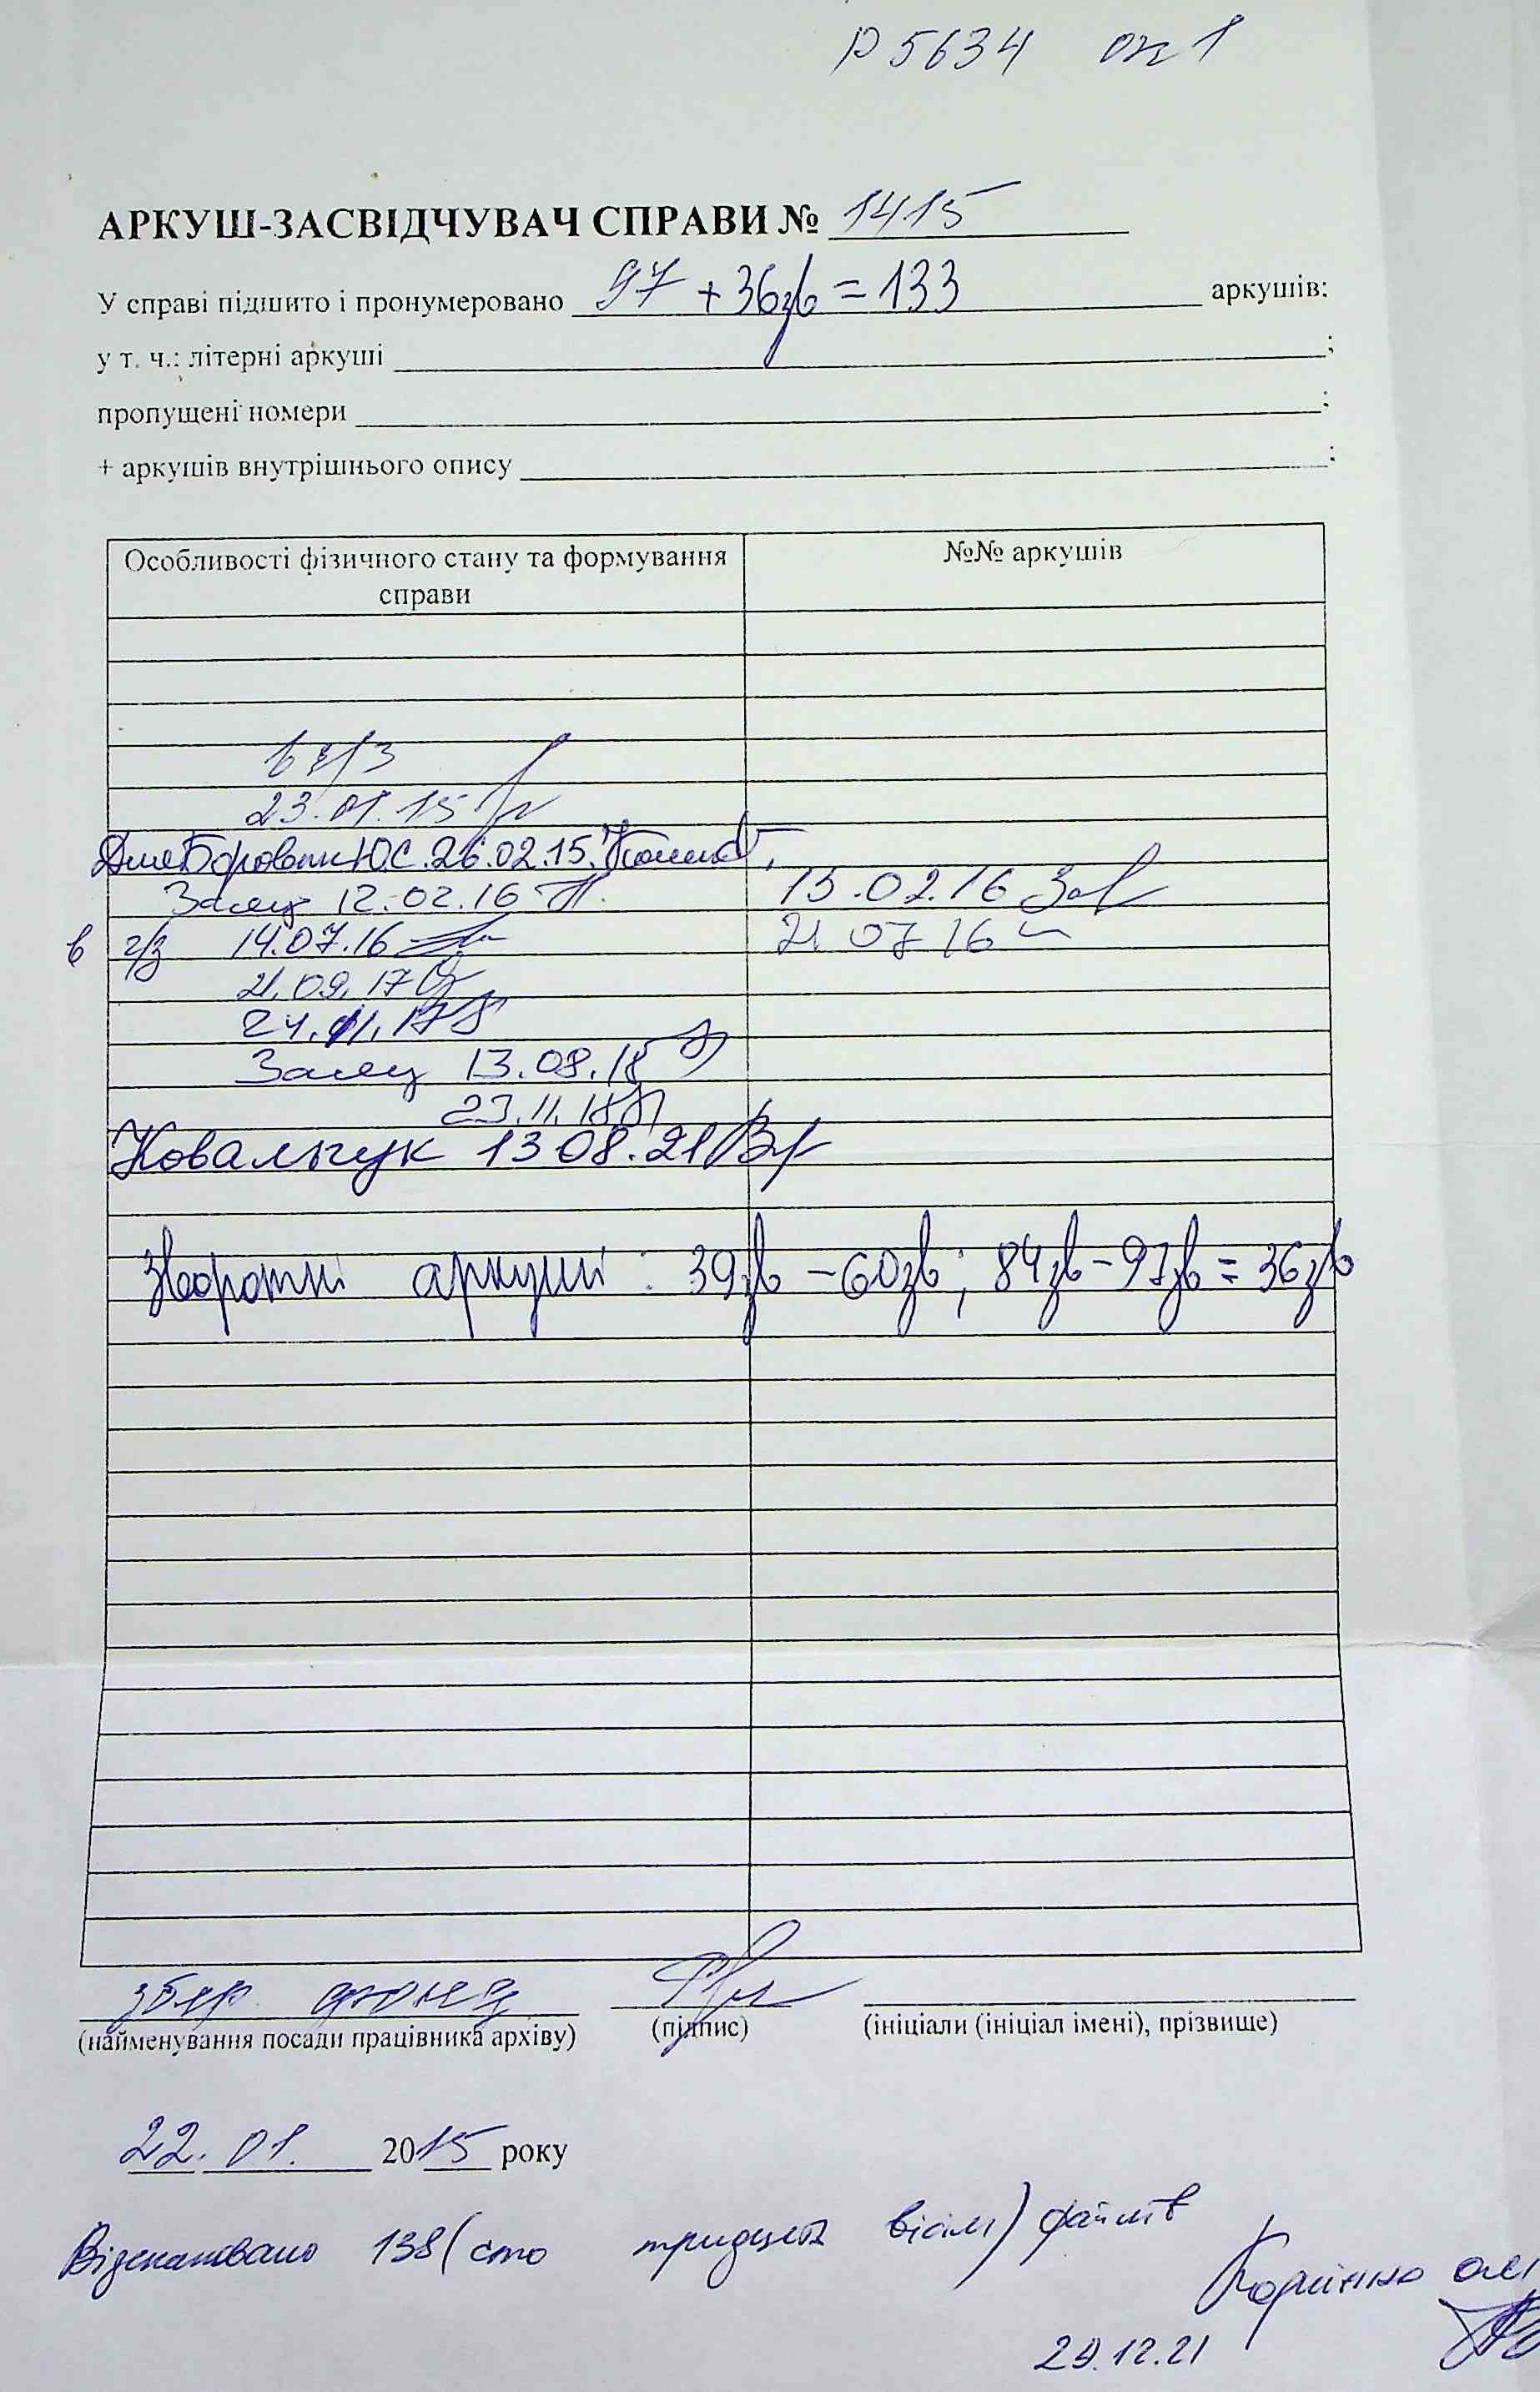 Р 5634 оп 1
АРКУШ-ЗАСВІДЧУВАЧ СПРАВИ № 1415
У справі підшито і пронумеровано 97 + 36зв = 133 аркушів:
у т. ч.: літерні аркуші ;
пропущені номери ;
+ аркушів внутрішнього опису ;
Особливості фізичного стану та формування справи
№№ аркушів
в ч/з
23.01.15
Боровик Ю.С. 26.02.15.
Заяц 12.02.16 15.02.16
в ч/з 14.07.16 21 07 16
21.09.17
24.11.17
Заяц 13.08.18
23.11.18
Ковальчук 13 08.21
Зворотні аркуші: 39зв – 60зв; 84зв – 97зв = 36зв
збер. фонд
(найменування посади працівника архіву) (підпис) (ініціали (ініціал імені), прізвище)
22. 01. 2015 року
Відскановано 138 (сто тридцять вісім) файлів
12.21